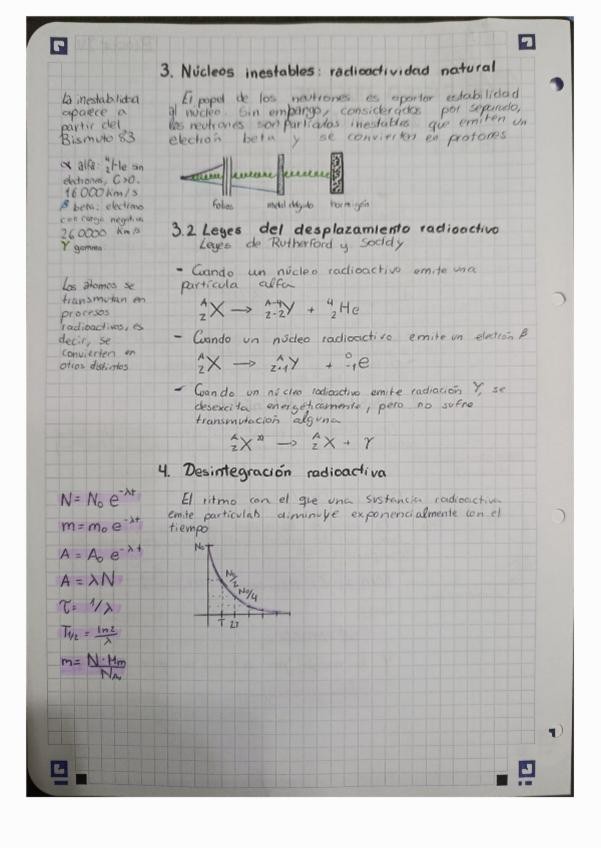 3. Núcleos inestables: radioactividad natural
La inestabilidad
aparece a
partir del
Bismuto 83
El papel de los neutrones es aportar estabilidad
al núcleo. Sin embargo, considerados por separado,
los neutrones son partículas inestables que emiten un
electrón beta y se convierten en protones
α alfa: ⁴₂He sin
electrones, C>0.
16000 km/s
β beta: electrones
con carga negativa
260000 km/s
γ gamma
Folios metal delgado hormigón
3.2 Leyes del desplazamiento radioactivo
Leyes de Rutherford y Soddy
Los átomos se
transmutan en
procesos
radioactivos, es
decir, se
convierten en
otros distintos
- Cuando un núcleo radioactivo emite una
partícula alfa
ᴬ_Z X → ᴬ⁻⁴_Z-2 Y + ⁴₂He
- Cuando un núcleo radioactivo emite un electrón β
ᴬ_Z X → ᴬ_Z+1 Y + ⁰₋₁e
- Cuando un núcleo radioactivo emite radiación γ, se
desexcita energéticamente, pero no sufre
transmutación alguna
ᴬ_Z X* → ᴬ_Z X + γ
4. Desintegración radioactiva
N = N₀ e^-λt
m = m₀ e^-λt
A = A₀ e^-λt
A = λN
τ = 1/λ
T₁/₂ = ln2/λ
m = N·Mm/N_A
El ritmo con el que una sustancia radioactiva
emite partículas diminuye exponencialmente con el
tiempo
N₀
N₀/2
N₀/4
T 2T